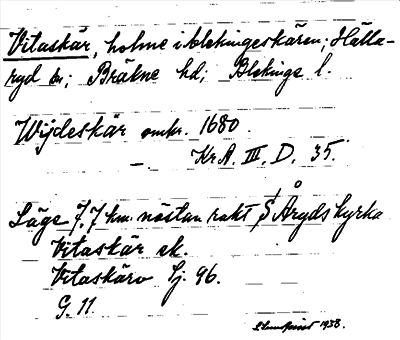 Vitaskär, holme i blekingeskären; Hälla-
ryd sn; Bräkne hd; Blekinge l.
Wijdeskär omkr. 1680.
—. Kr.A. III. D. 35.
Läge 7,7 km. nästan rakt S Åryds kyrka
Vitaskär ek.
Vitaskärv Sj. 96.
G. 11.
1938.